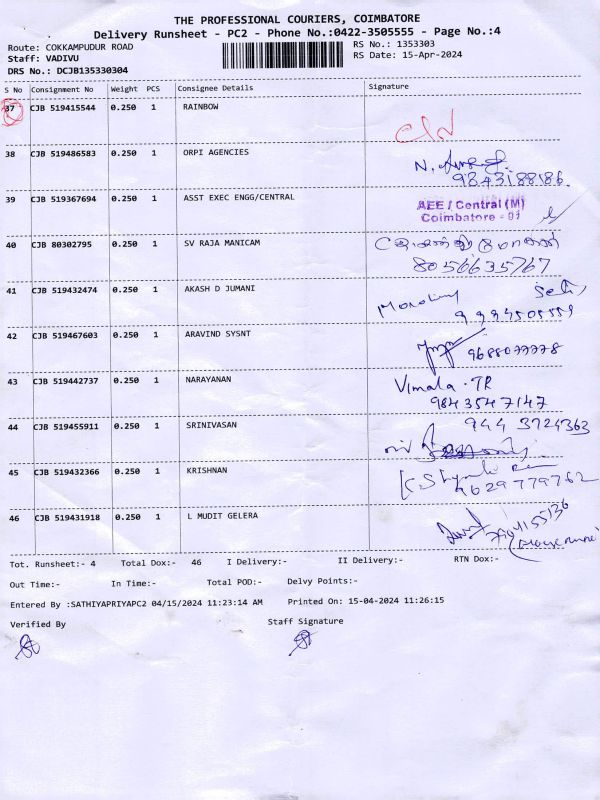 THE PROFESSIONAL COURIERS, COIMBATORE
Delivery Runsheet - PC2 - Phone No.:0422-3505555 - Page No.:4
Route: COKKAMPUDUR ROAD
RS No.: 1353303
Staff: VADIVU
RS Date: 15-Apr-2024
DRS No.: DCJB135330304
S No Consignment No Weight PCS Consignee Details Signature
37 CJB 519415544 0.250 1 RAINBOW
38 CJB 519486583 0.250 1 ORPI AGENCIES
N.
9843188186
39 CJB 519367694 0.250 1 ASST EXEC ENGG/CENTRAL
AEE / Central (M)
Coimbatore - 01
40 CJB 80302795 0.250 1 SV RAJA MANICAM
8056635767
41 CJB 519432474 0.250 1 AKASH D JUMANI
9994505559
42 CJB 519467603 0.250 1 ARAVIND SYSNT
9688077778
43 CJB 519442737 0.250 1 NARAYANAN
Vimala . TR
9843547147
44 CJB 519455911 0.250 1 SRINIVASAN
944 3724363
45 CJB 519432366 0.250 1 KRISHNAN
9629779762
46 CJB 519431918 0.250 1 L MUDIT GELERA
Tot. Runsheet:- 4 Total Dox:- 46 I Delivery:- II Delivery:- RTN Dox:-
Out Time:- In Time:- Total POD:- Delvy Points:-
Entered By :SATHIYAPRIYAPC2 04/15/2024 11:23:14 AM Printed On: 15-04-2024 11:26:15
Verified By Staff Signature